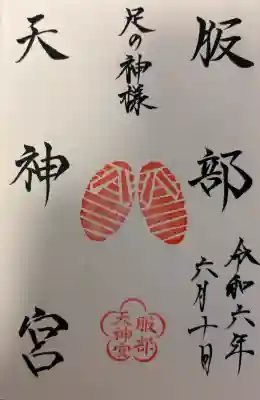 服部
令和六年
六月十日
足の神様
天神宮
服部
天神宮